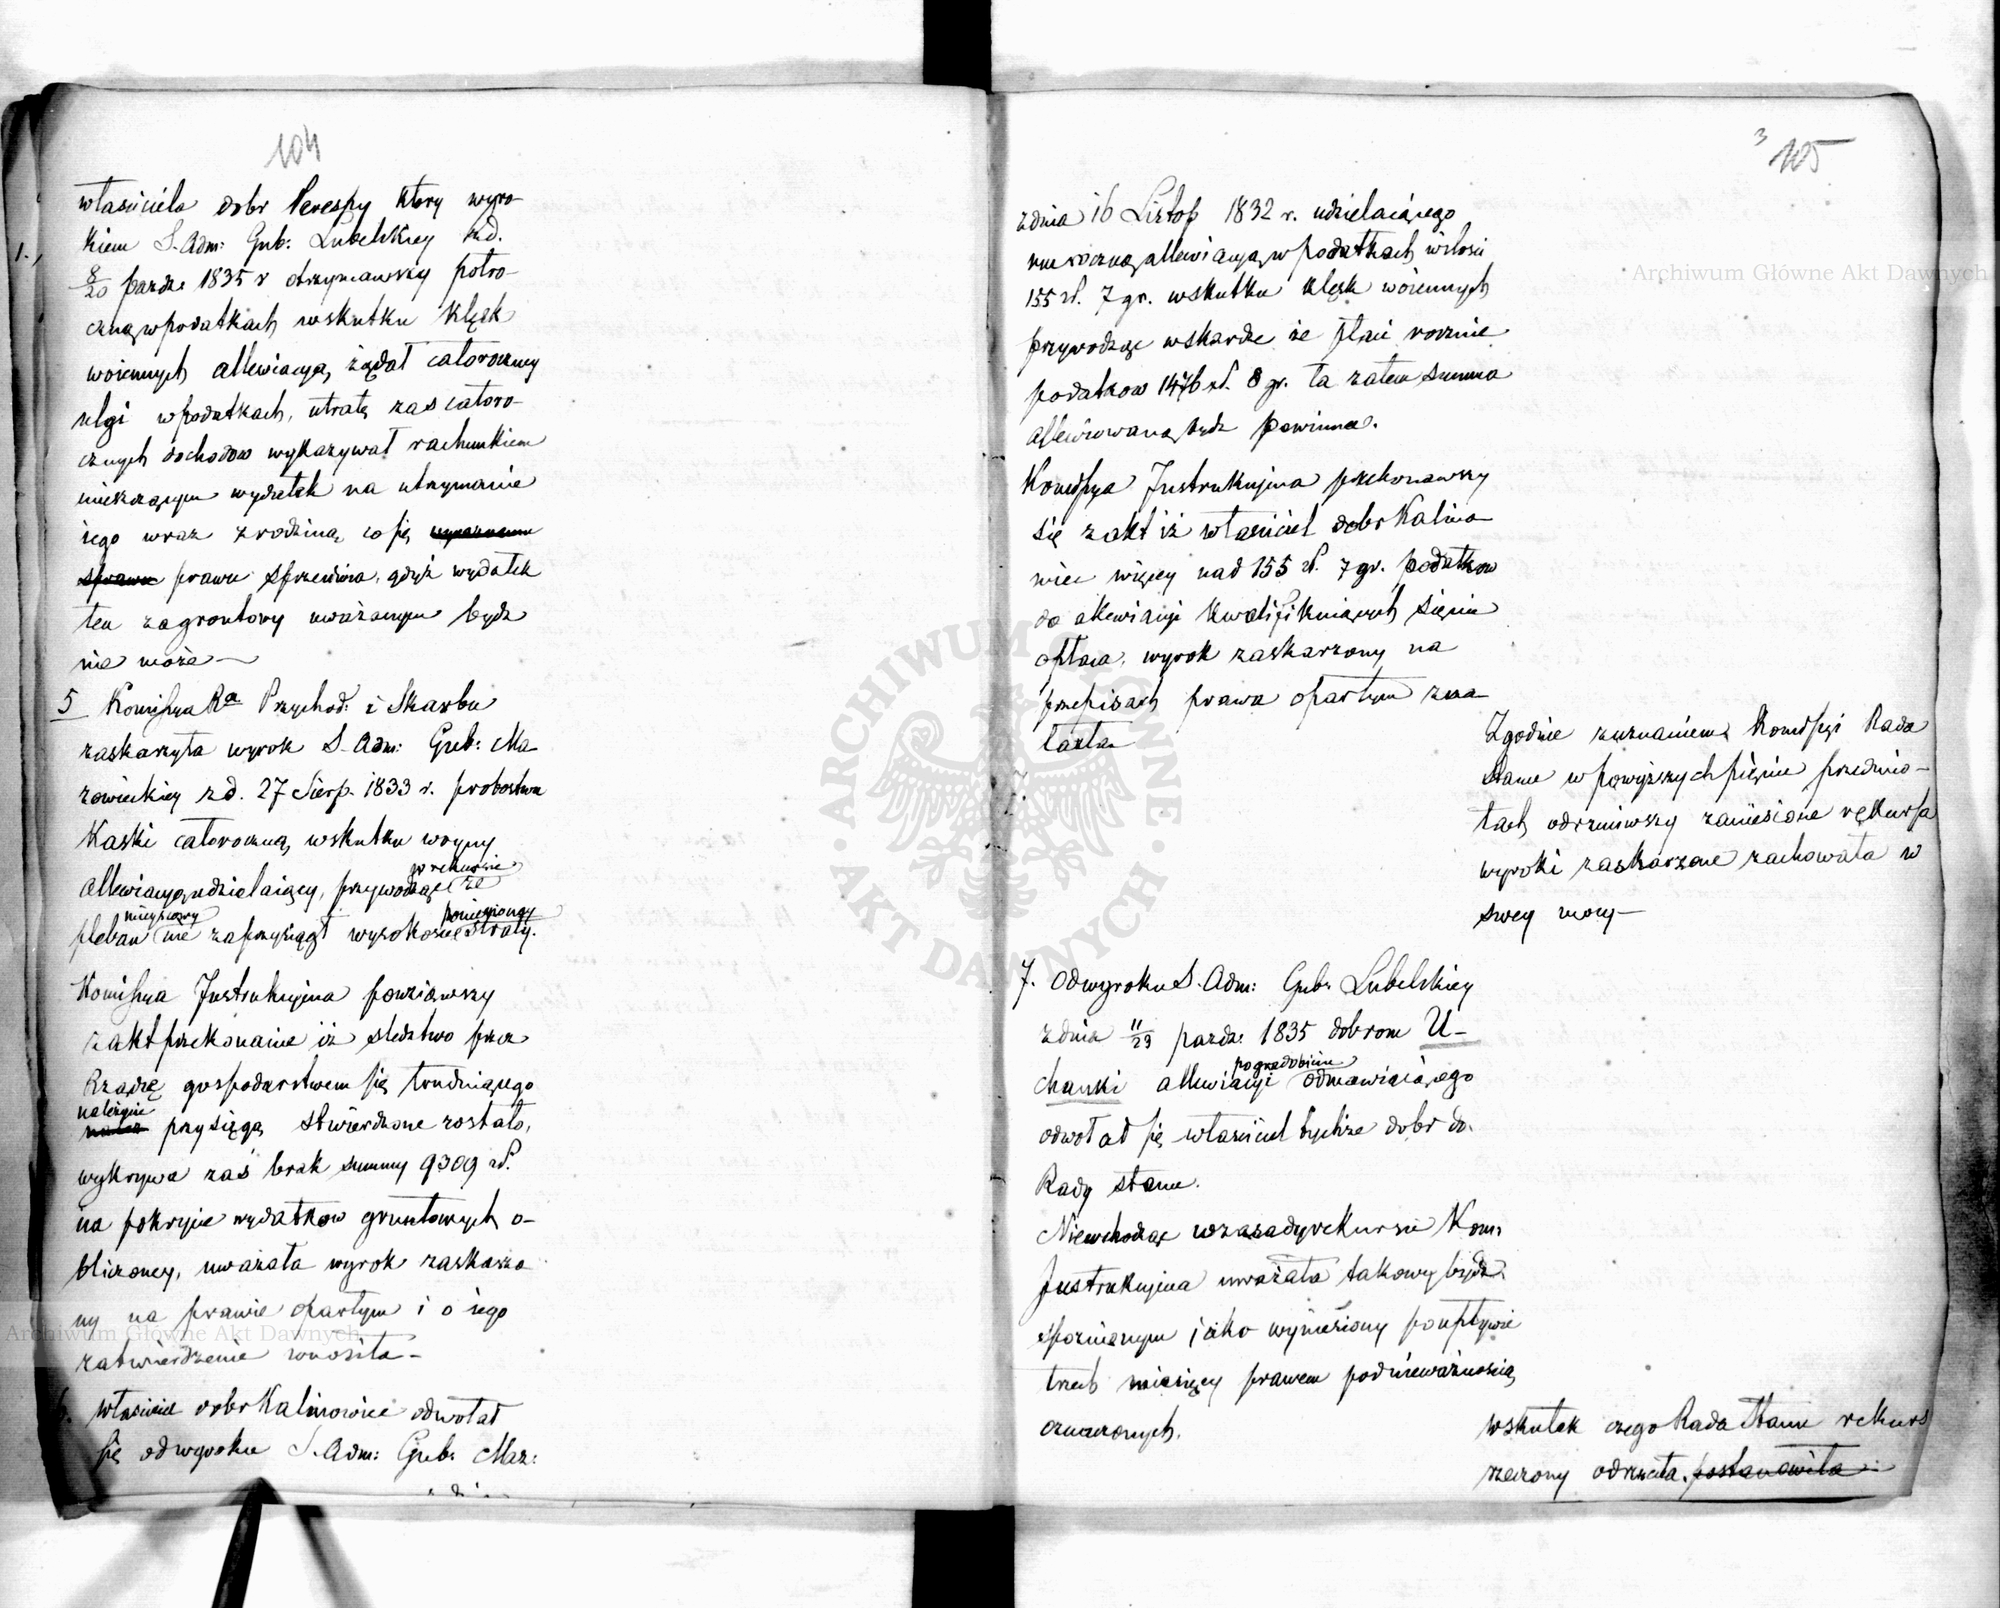 104
właściciela dobr Perespy ktory wyro-
kiem S. Adm: Gub: Lubelskiey zd.
8/20 paźdz. 1835 r otrzymawszy połro-
czną w podatkach wskutku klęsk
woiennych allewiacyą, żądał całoroczney
ulgi w podatkach, utratę zas całoro-
cznych dochodow wykazywał rachunkiem
mieszczącym wydatek na utrzymanie
iego wraz z rodziną, co się
prawu sprzeciwia, gdyż wydatek
ten za gruntowy uważanym bydź
nie może —
5 Komissya Ra Przychod: i Skarbu
zaskarzyła wyrok S. Adm: Gub: Ma-
zowieckiey zd. 27 Sierp. 1833 r. probostwu
Kaski całoroczną, wskutku woyny
allewiacyą udzielaiący, przywodząc w rekursie że
pleban mieyscowy nie zaprzysiągł wysokości poniesioney straty.
Komissya Instrukcyjna powziąwszy
z akt przekonanie iż sledztwo przez
Rządzę gospodarstwem się trudniącego
należycie przysięgą stwierdzone zostało,
wykrywa zaś brak summy 9309 zł.
na pokrycie wydatkow gruntowych o-
bliczoney, uważała wyrok zaskarżo
ny na prawie opartym i o iego
zatwierdzenie wnosiła —
6. właściciel dobr Kalinowiec odwołał
się od wyroku S. Adm: Gub: Maz:
3 105
z dnia 16 Listop 1832 r. udzielaiącego
mu roczną allewiacyą w podatkach wilości
155 zł. 7 gr. wskutku klęsk woiennych
przywodząc wskardze że płaci rocznie
podatkow 1476 zł. 8 gr. ta zatem summa
allewiowaną bydź powinna.
Komissya Instrukcyjna przekonawszy
się z akt iż właściciel dobr Kalino-
wiec więcey nad 155 zł. 7 gr. podatkow
do alewiacyi kwalifikuiących się nie
opłaca, wyrok zaskarzony na
przepisach prawa opartym zna-
lazła
Zgodnie z uznaniem Komissyi Rada
Stanu w powyższych pięciu przedmio-
tach odrzuciwszy zaniesione rekursa
wyroki zaskarzone zachowała w
swey mocy —
7. Od wyroku S. Adm: Gub: Lubelskiey
z dnia 11/23 pazdz: 1835 dobrom U-
chanki allewiacyi pogradobicia odmawiaiącego
odwołał się właściciel tychże dobr do
Rady Stanu.
Niewchodząc w zasady rekursu Kom:
Instrukcyjna uważała takowy bydź
spoznionym jako wyniesiony po upływie
trzech miesięcy prawem pod nieważnoscią
oznaczonych.
wskutek czego Rada Stanu rekurs
rzeczony odrzuciła. postanowiła
Archiwum Główne Akt Dawnych
Archiwum Główne Akt Dawnych
ARCHIWUM GŁÓWNE AKT DAWNYCH